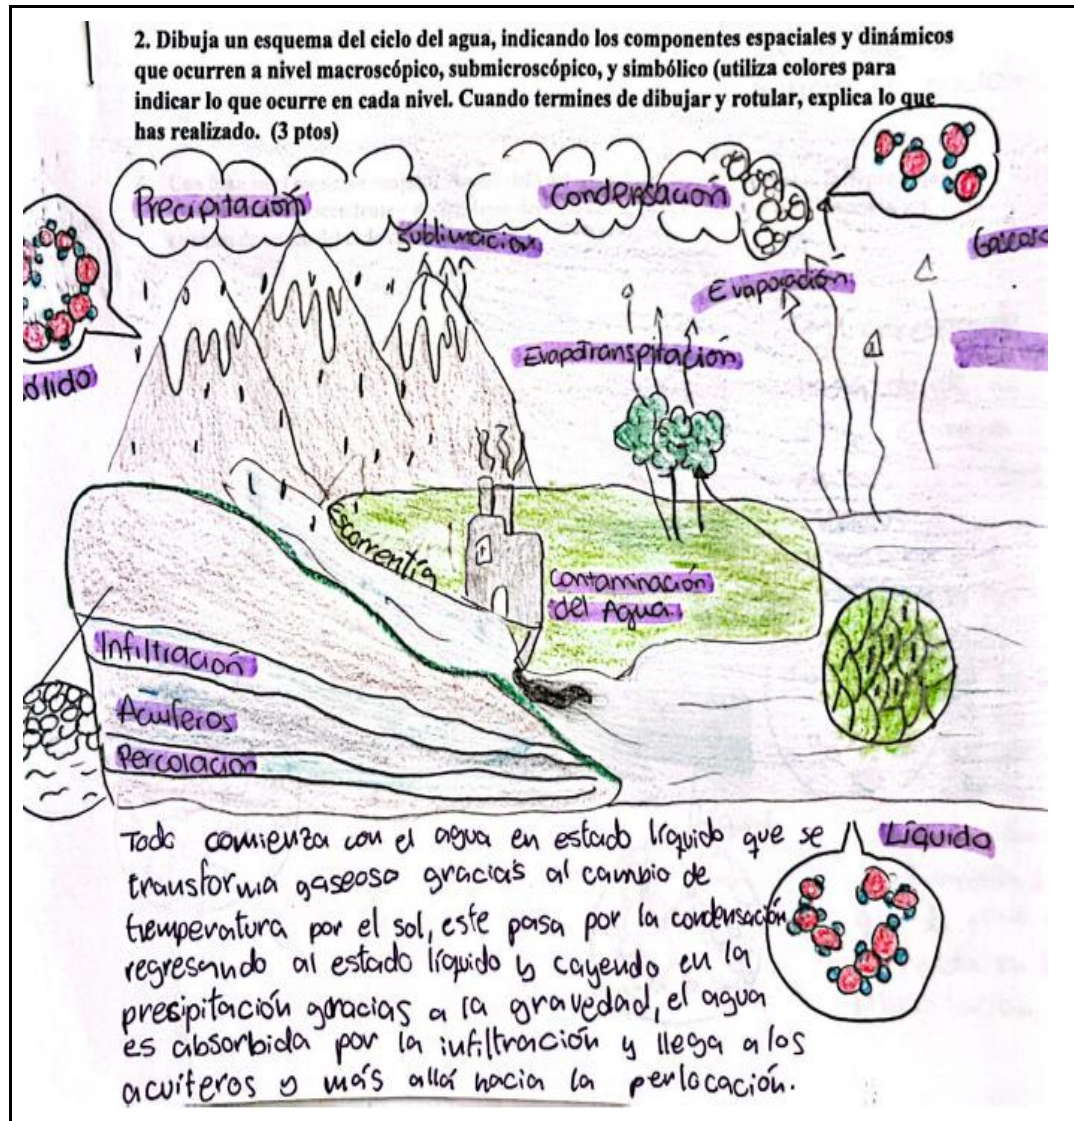 2. Dibuja un esquema del ciclo del agua, indicando los componentes espaciales y dinámicos
que ocurren a nivel macroscópico, submicroscópico, y simbólico (utiliza colores para
indicar lo que ocurre en cada nivel. Cuando termines de dibujar y rotular, explica lo que
has realizado. (3 ptos)
Precipitación
Condensación
Sublimación
Gaseoso
Evaporación
Evapotranspiración
ólido
Escorrentía
Contaminación
del Agua
Infiltración
Acuíferos
Percolación
Líquido
Todo comienza con el agua en estado líquido que se
transforma gaseoso gracias al cambio de
temperatura por el sol, este pasa por la condensación
regresando al estado líquido y cayendo en la
presipitación gracias a la gravedad, el agua
es absorbida por la infiltración y llega a los
acuíferos y más allá hacia la perlocación.